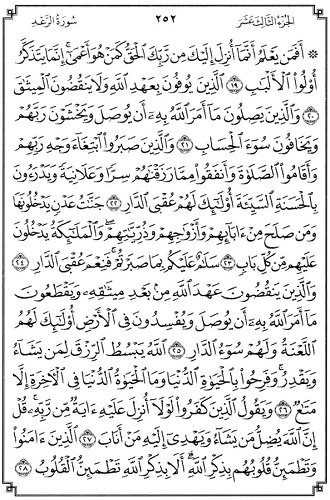 الجزء الثالث عشر ٢٥٢ سورة الرعد
۞ أَفَمَن يَعْلَمُ أَنَّمَآ أُنزِلَ إِلَيْكَ مِن رَّبِّكَ ٱلْحَقُّ كَمَنْ هُوَ أَعْمَىٰٓ ۚ إِنَّمَا يَتَذَكَّرُ
أُو۟لُوا۟ ٱلْأَلْبَٰبِ ١٩ ٱلَّذِينَ يُوفُونَ بِعَهْدِ ٱللَّهِ وَلَا يَنقُضُونَ ٱلْمِيثَٰقَ
٢٠ وَٱلَّذِينَ يَصِلُونَ مَآ أَمَرَ ٱللَّهُ بِهِۦٓ أَن يُوصَلَ وَيَخْشَوْنَ رَبَّهُمْ
وَيَخَافُونَ سُوٓءَ ٱلْحِسَابِ ٢١ وَٱلَّذِينَ صَبَرُوا۟ ٱبْتِغَآءَ وَجْهِ رَبِّهِمْ
وَأَقَامُوا۟ ٱلصَّلَوٰةَ وَأَنفَقُوا۟ مِمَّا رَزَقْنَٰهُمْ سِرًّا وَعَلَانِيَةً وَيَدْرَءُونَ
بِٱلْحَسَنَةِ ٱلسَّيِّئَةَ أُو۟لَٰٓئِكَ لَهُمْ عُقْبَى ٱلدَّارِ ٢٢ جَنَّٰتُ عَدْنٍ يَدْخُلُونَهَا
وَمَن صَلَحَ مِنْ ءَابَآئِهِمْ وَأَزْوَٰجِهِمْ وَذُرِّيَّٰتِهِمْ ۖ وَٱلْمَلَٰٓئِكَةُ يَدْخُلُونَ
عَلَيْهِم مِّن كُلِّ بَابٍ ٢٣ سَلَٰمٌ عَلَيْكُم بِمَا صَبَرْتُمْ ۚ فَنِعْمَ عُقْبَى ٱلدَّارِ ٢٤
وَٱلَّذِينَ يَنقُضُونَ عَهْدَ ٱللَّهِ مِنۢ بَعْدِ مِيثَٰقِهِۦ وَيَقْطَعُونَ
مَآ أَمَرَ ٱللَّهُ بِهِۦٓ أَن يُوصَلَ وَيُفْسِدُونَ فِى ٱلْأَرْضِ ۙ أُو۟لَٰٓئِكَ لَهُمُ
ٱللَّعْنَةُ وَلَهُمْ سُوٓءُ ٱلدَّارِ ٢٥ ٱللَّهُ يَبْسُطُ ٱلرِّزْقَ لِمَن يَشَآءُ
وَيَقْدِرُ ۚ وَفَرِحُوا۟ بِٱلْحَيَوٰةِ ٱلدُّنْيَا وَمَا ٱلْحَيَوٰةُ ٱلدُّنْيَا فِى ٱلْءَاخِرَةِ إِلَّا
مَتَٰعٌ ٢٦ وَيَقُولُ ٱلَّذِينَ كَفَرُوا۟ لَوْلَآ أُنزِلَ عَلَيْهِ ءَايَةٌ مِّن رَّبِّهِۦ ۗ قُلْ
إِنَّ ٱللَّهَ يُضِلُّ مَن يَشَآءُ وَيَهْدِىٓ إِلَيْهِ مَنْ أَنَابَ ٢٧ ٱلَّذِينَ ءَامَنُوا۟
وَتَطْمَئِنُّ قُلُوبُهُم بِذِكْرِ ٱللَّهِ ۗ أَلَا بِذِكْرِ ٱللَّهِ تَطْمَئِنُّ ٱلْقُلُوبُ ٢٨